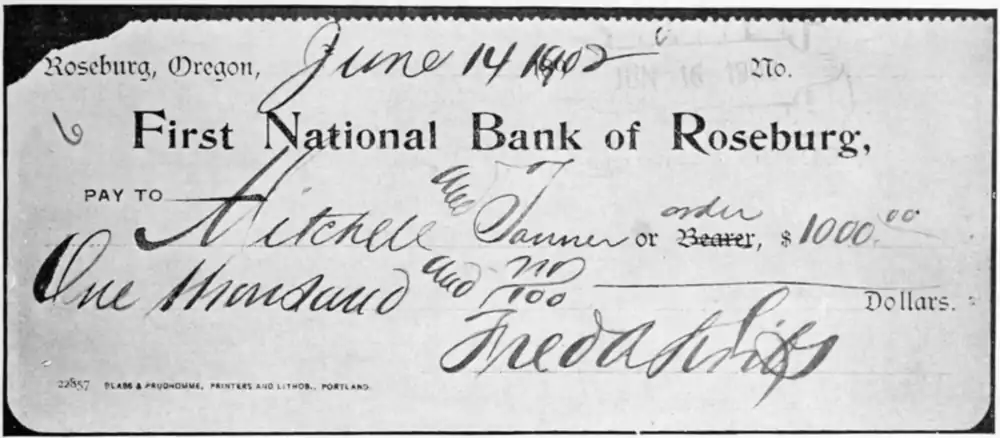 Roseburg, Oregon, June 14 1902 No.
6
First National Bank of Roseburg,
PAY TO Mitchell and Tanner or order Bearer, $ 1000.00
One thousand and no/100 Dollars.
Fred A
22857 GLASS & PRUDHOMME, PRINTERS AND LITHOS., PORTLAND